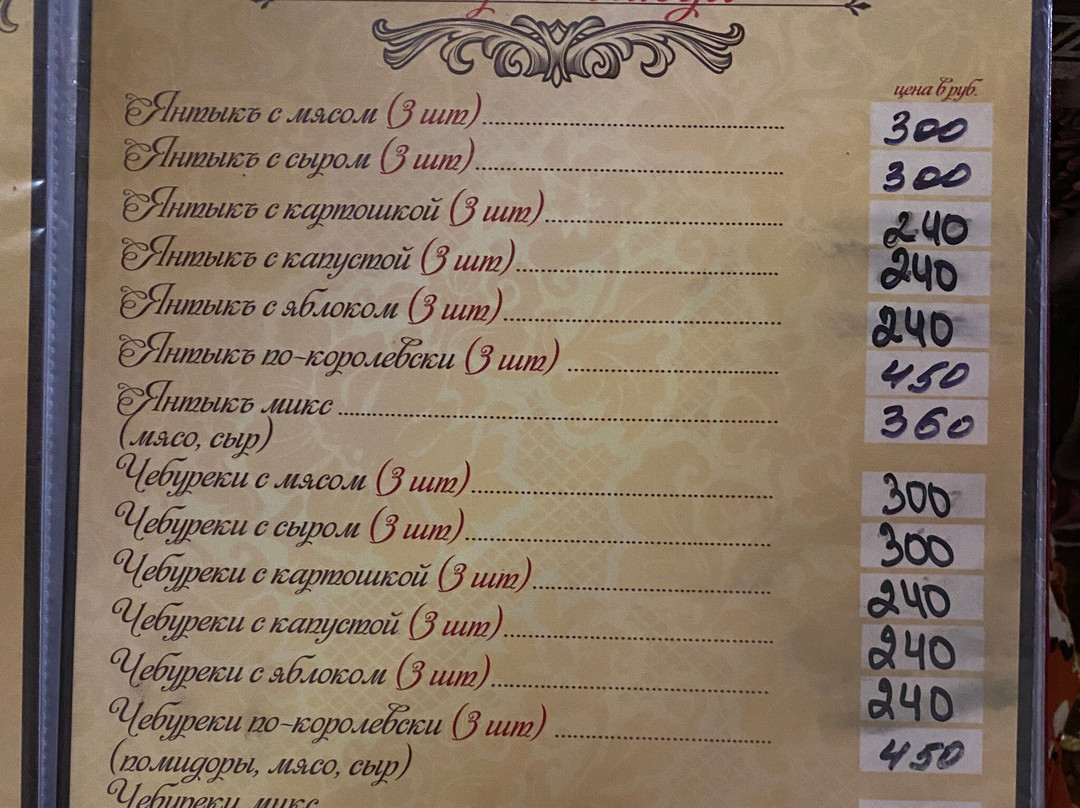 цена в руб.
Янтыкъ с мясом (3 шт) 300
Янтыкъ с сыром (3 шт) 300
Янтыкъ с картошкой (3 шт) 240
Янтыкъ с капустой (3 шт) 240
Янтыкъ с яблоком (3 шт) 240
Янтыкъ по-королевски (3 шт) 450
Янтыкъ микс 360
(мясо, сыр)
Чебуреки с мясом (3 шт) 300
Чебуреки с сыром (3 шт) 300
Чебуреки с картошкой (3 шт) 240
Чебуреки с капустой (3 шт) 240
Чебуреки с яблоком (3 шт) 240
Чебуреки по-королевски (3 шт) 450
(помидоры, мясо, сыр)
Чебуреки микс